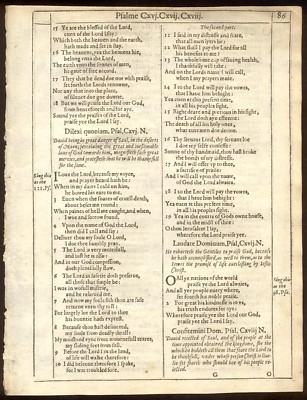 Psalme Cxvj. Cxvij. Cxviij.
86
15 Ye are the blessed of the Lord,
even of the Lord I say:
Which both the heaven and the earth,
hath made and set in stay.
16 The heavens, yea the heavens hie,
belong unto the Lord,
The earth unto the sonnes of men,
he gave of free accord.
17 They that be dead doe not with praise,
set forth the Lords renowne,
Nor any that into the place,
of silence doe goe downe.
18 But we will praise the Lord our God,
from henceforth and for aye,
Sound yee the praises of the Lord,
praise yee the Lord I say.
Dilexi quoniam. Psal, Cxvj. N.
David being in great danger of Saul, in the desert
of Maon, perceiving the great and inestimable
love of God towards him, magnifieth such great
mercies, and protesteth that he will be thankfull
for the same.
Sing this
as the
I Love the Lord, because my voyce,
and prayer heard hath he:
When in my daies I cald on him,
he bowed his eare to me.
Even when the snares of cruell death,
about beset me round:
When paines of hell me caught, and when,
I woe and sorrow found.
Upon the name of God the Lord,
then did I call and say:
Deliver thou my soule O Lord,
I doe thee humbly pray.
The Lord is very mercifull,
and just he is also:
And in our God compassion,
doth plentifully flow.
The Lord in safetie doth preserve,
all those that simple be:
I was in wofull miserie,
and he relieved me.
And now my soule sith thou art safe
returne unto thy rest:
For largely loe the Lord to thee
his bountie hath exprest.
8 Because thou hast delivered,
my soule from deadly thrall:
My moistned eyes from mournefull teares,
my sliding feet from fall.
9 Before the Lord I in the land,
of life will walke therefore:
10 I did beleeve therefore I spake,
for I was troubled sore.
The second part.
11 I said in my distresse and feare,
that all men lyers be:
12 What shall I pay the Lord for all
his benefits to me?
13 The wholesome cup of saving health,
I thankfully will take:
And on the Lords name I will call,
when I my prayer make.
14 I to the Lord will pay the vowes,
that I have him behight:
Yea even at this present time,
in all his peoples sight.
15 Right deare and precious in his sight,
the Lord doth aye esteeme:
The death of all his holy ones,
what ever men doe deeme.
16 Thy servant Lord, thy servant loe
I doe my selfe confesse:
Sonne of thy handmaid, thou hast broke
the bonds of my distresse.
17 And I will offer up to thee,
a sacrifice of praise:
And I will call upon the name,
of God the Lord alwaies.
18 I to the Lord will pay the vowes,
that I have him behight:
Yea even at this present time,
in all his peoples sight.
19 Yea in the courts of Gods owne house,
and in the midst of thee:
O thou Jerusalem I say,
wherefore the Lord praise yee.
Laudate Dominum. Psal, Cxvij. N.
He exhorteth the Gentiles to praise God, because
he hath accomplished, as well to them, as to the
Iewes the promise of life everlasting by Iesus
Christ.
Sing this
as the
O All ye nations of the world
praise ye the Lord alwaies,
And all yee people every where,
set forth his noble praise.
For great his kindnesse is to us,
his truth endures for aye:
Wherefore praise yee the Lord our God,
praise yee the Lord I say.
Confitemini Dom. Psal, Cxviij N
G
O